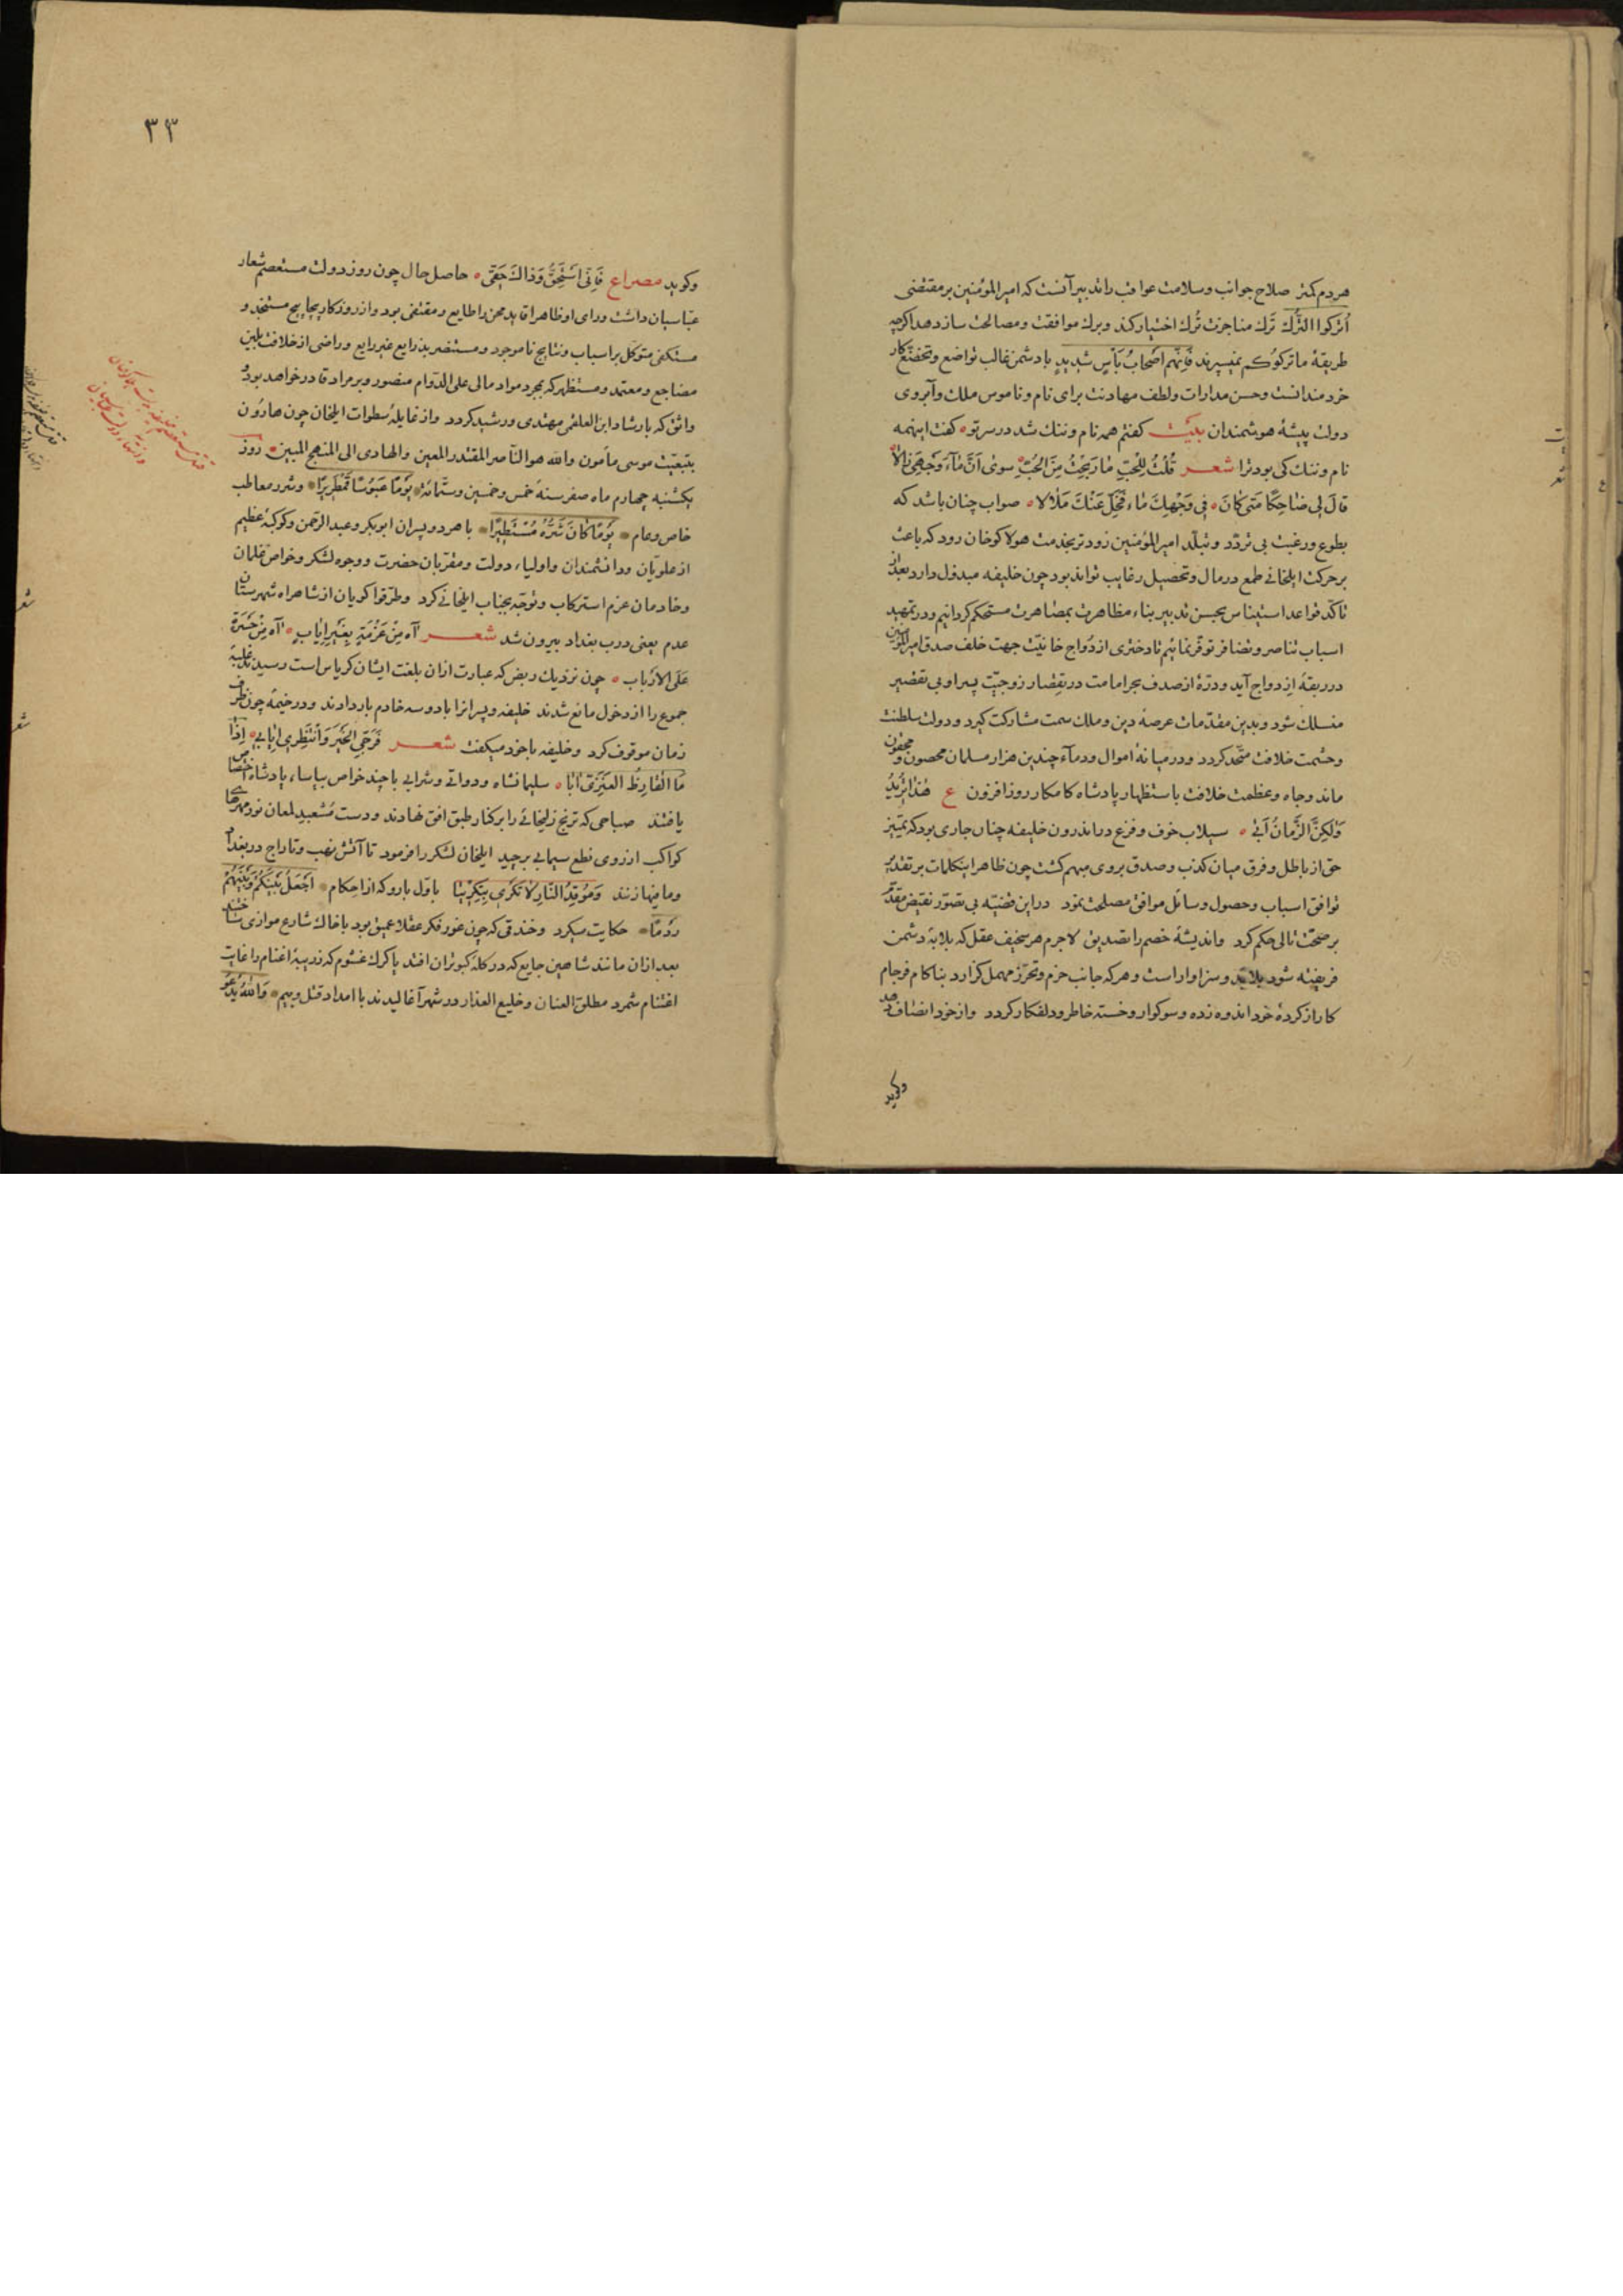 هردم کمتر صلاح جوانب وسلامت عواقب را تدبیر آنست که امیر المؤمنین بر مقتضی
اُترکوا التُّرك تَرك مناجزت تُرك اختیار کند وبرك موافقت ومصالحت سازد هر اکرچه
طریقهٔ ما ترکوکم نمیسپرند فَاِنَّهم اصحابُ بَأسٍ شدیدٍ با دشمن غالب تواضع وتخضع کار
خردمندانست وحسن مدارات ولطف مهادنت برای نام وناموس ملك وآبروی
دولت پیشهٔ هوشمندان بیت کفتم همه نام وننك شد در سر تو کفت اینهمه
نام وننك کی بود ترا شعر قُلتُ لِلحُبِّ مَا رَبِحْتُ مِنَ الحُبِّ سِوی اَنَّ مَاءَ وَجْهِی زَالا
قالَ لِی ضَاحِکًا مَتی کانَ فِی وَجْهِكَ مَاء فَخَلِّ عَنْكَ مَلالا صواب چنان باشد که
بطوع ورغبت بی تردّد وتبلّد امیر المؤمنین زودتر بخدمت هولاکو خان رود که باعث
بر حرکت ایلخانی طمع در مال وتحصیل رغایب تواند بود چون خلیفه مبذول دارد بعد از
تاکّد قواعد استیناس بحسن تدبیر بناء مظاهرت بمصاهرت مستحکم کردانیم ودر تمهید
اسباب تناصر وتضافر توقّر نمائیم تا دختری از دُواج خانیّت جهت خلف صدق امیر المؤمنین
در ربقهٔ ازدواج آید ودرّهٔ از صدف بحر امامت در تِقصار زوجیّت پسر او بی تقصیر
منسلك شود وبدین مقدّمات عرصهٔ دین وملك سمت مشارکت کیرد ودولت سلطنت
وحشمت خلافت متّحد کردد ودر میانهٔ اموال ودماء چندین هزار مسلمان محصون ومحقون
ماند وجاه وعظمت خلافت باستظهار پادشاه کامکار روز افزون ع هٰذا یُرِیدُ
وَلٰکِنَّ الزَّمَانُ اَبَی سیلاب خوف وفزع در اندرون خلیفه چنان جاری بود که تمییز
حق از باطل وفرق میان کذب وصدق بروی مبهم کشت چون ظاهر اینکلمات بر تقدیر
توافق اسباب وحصول وسائل موافق مصلحت نمود در این قضیّه بی تصوّر نقیض مقدّم
بر صحّت تالی حکم کرد واندیشهٔ خصم را تصدیق لاجرم هر سخیف عقل که بلابهٔ دشمن
فریفته شود بلابدّ وسزاوار است وهر که جانب حزم وتحرّز مهمل کزارد بنا کام فرجام
کار از کردهٔ خود اندوه زده وسوکوار وخسته خاطر ودلفکار کردد واز خود انصاف دهد
وکوید
٣٣
وکوید مصراع فَاِنِّی اَسْتَحِقُّ وَذاكَ حَقّی حاصل حال چون روز دولت مستعصم شعار
عبّاسیان داشت ورای او ظاهرا قاید محن را طایع ومقتفی بود واز روزکار پیچاپیچ مستنجد و
مستکفی متوکّل بر اسباب ونتایج ناموجود ومستنصر بذرایع غیر رایع وراضی از خلافت بلین
مضاجع ومعتمد ومستظهر که بمجرد مواد مالی علی الدّوام منصور وبر مراد قادر خواهد بود
واثق که بارشاد ابن العلقمی مهتدی ورشید کردد واز غایلهٔ سطوات ایلخان چون هارون
بتبعیّت موسی مأمون والله هو النّاصر المقتدر المعین والهادی الی المنهج المبین روز
یکشنبه چهارم ماه صفر سنهٔ خمس وخمسین وستّمائة یَوْمًا عَبُوسًا قَمْطَرِیرًا وشرر معاطب
خاص وعام یَوْمًا کَانَ شَرُّهُ مُسْتَطِیرًا با هر دو پسران ابوبکر وعبد الرّحمن وکوکبهٔ عظیم
از علویّان ودانشمندان واولیاء دولت ومقرّبان حضرت ووجوه لشکر وخواصّ غلمان
وخادمان عزم استرکاب وتوجّه بجناب ایلخانی کرد وطرّقوا کویان از شاهراه شهرستان
عدم یعنی درب بغداد بیرون شد شعر آه مِنْ عَزْمَةٍ بِغَیْرِ اِیَاب آه مِنْ حَسْرَة
عَلَی الاَرْبَاب چون نزدیك ربض که عبارت ازان بلغت ایشان کریاس است رسیدند غلبهٔ
جموع را از دخول مانع شدند خلیفه وپسرانرا با دو سه خادم بار دادند ودر خیمهٔ چون ظرف
زمان موقوف کرد وخلیفه با خود میکفت شعر فَرَجِّی الخَیْرَ وَانْتَظِرِی اِیَابِی اِذَا
مَا القَارِظُ العَنَزِیّ آبَا سلیمانشاه ودواتی وشرابی با چند خواص بیاساء پادشاه اختصاص
یافتند صباحی که ترنج زلیخائی را بر کنار طبق افق نهادند ودست مُشعبد لمعان نور مهرهای
کواکب از روی نطع سیمابی برچید ایلخان لشکر را فرمود تا آتش نهب وتاراج در بغداد
وما فیها زنند وَمُوقِدُ النَّارِ لَا تَکْرَی بِتَکْرِیتَا باوّل بارو که از احکام اَجْعَلْ بَیْنَکُمْ وَبَیْنَهُمْ
رَدْمًا حکایت میکرد وخندقی که چون غور فکر عقلا عمیق بود با خاك شارع موازی ساختند
بعد ازان مانند شاهین جایع که در کلهٔ کبوتران افتد یا کرك غشوم که زریبهٔ اغنام را غایت
اغتنام شمرد مطلق العنان وخلیع العذار در شهر آغالیدند با امداد قتل وبیم وَاللهُ یَدْعُو
شعر
شعر